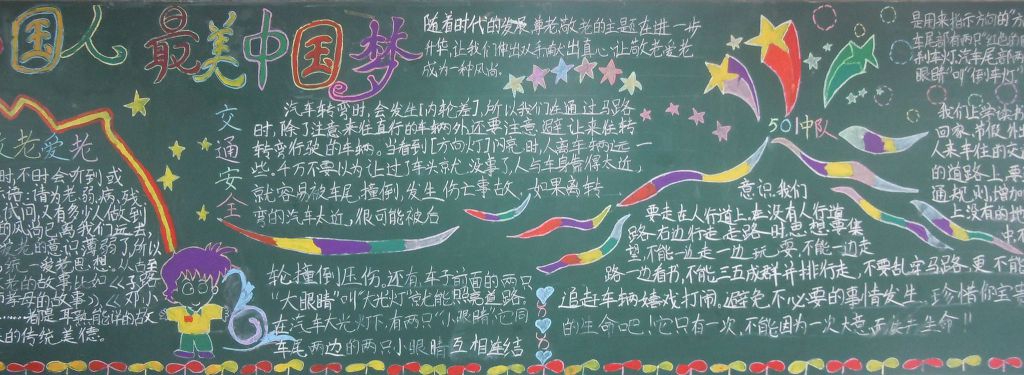 国人 最美中国梦
随着时代的发展,尊老敬老的主题在进一步
升华,让我们伸出双手献出真心,让敬老爱老
成为一种风尚。
老爱老
时,不时会听到或
情的老弱,病残
又有多少人做到
的风尚已离我们远去,
的意识薄弱了,所以
老的故事比如《子路
的故事》,《邓小
的传统美德。
交通安全
汽车转弯时,会发生[内轮差],所以我们在通过马路
时,除了注意来往直行的车辆外还要注意避让来往转
转弯行驶的车辆,当看到[方向灯]闪亮时人离车辆远一
些。千万不要以为让过了车头就没事了,人与车身靠得太近,
就容易被车尾撞倒,发生伤亡事故,如果离转
弯的汽车太近,很可能被后
轮撞倒压伤,还有车子前面的两只
“大眼睛”叫“大光灯”就能照亮道路
在汽车大光灯下,有两只“小眼睛”它同
车尾两边的两只小眼睛互相连结
501中队
意识,我们
要走在人行道上,在没有人行道
路右边行走,走路时思想要集
望,不能一边走一边玩耍,不能一边走
路一边看书,不能三五成群并排行走,不要乱穿马路,更不能
追赶车辆嬉戏打闹,避免不必要的事情发生,珍惜你宝贵
的生命吧!它只有一次,不能因为一次大意而失去生命!!
是用来指示方向的“方
车尾部有两只红色的
刹车灯,汽车尾部两
眼睛”叫“倒车灯”
我们上学读书
回家,节假外出
人来车往的交
的道路上,要
通规则,增加
上没有的地